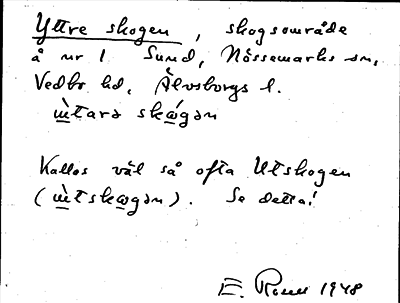 Yttre skogen, skogsområde
å nr 1 Sund, Nössemarks sn,
Vedbo hd, Älvsborgs l.
ɯ̀tarə skǽgən
Kallas väl så ofta Utskogen
(ɯ̀tskægən). Se detta!
E. 1948